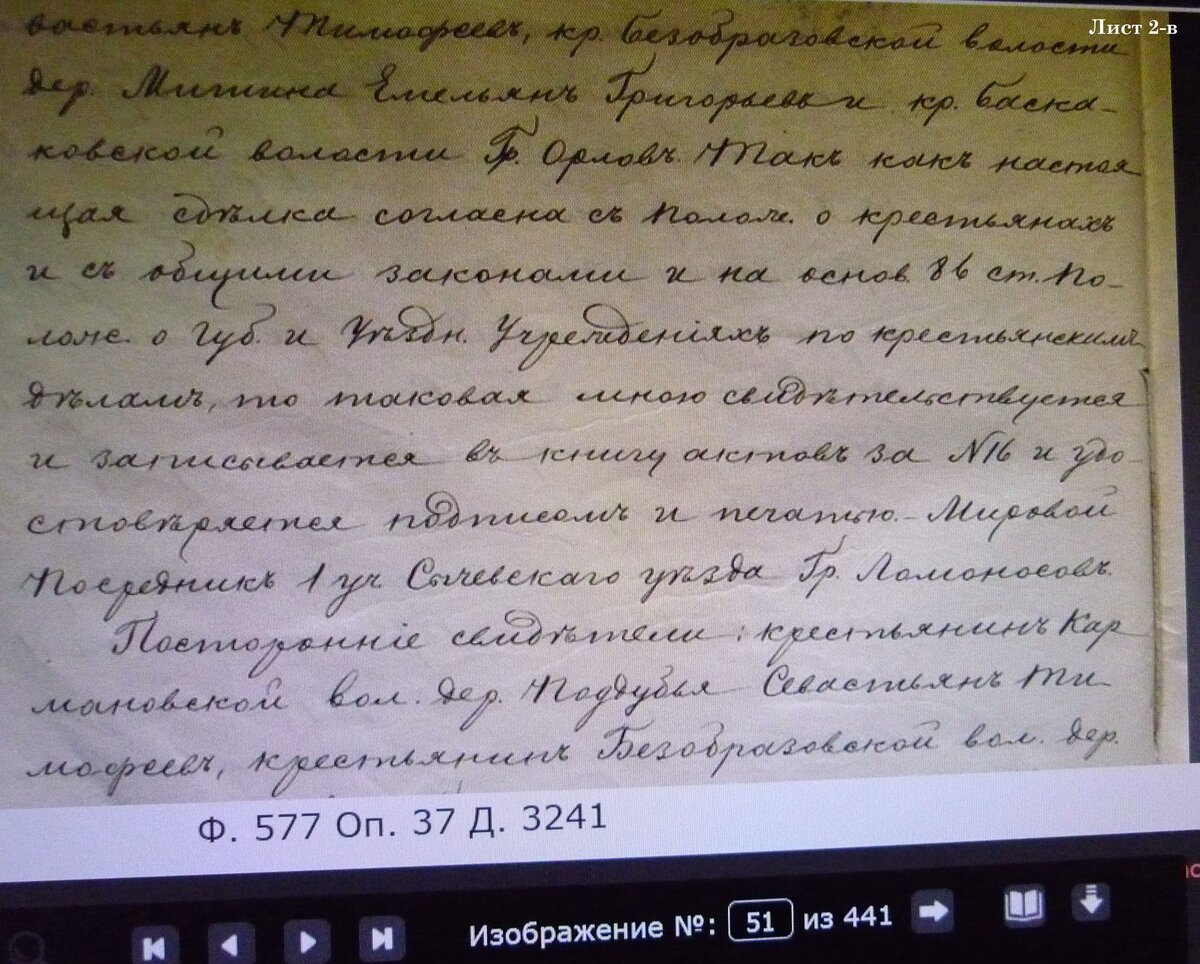 Лист 2-в
вастьянъ Тимофеевъ, кр. Безобразовской волости
дер. Митина Емельянъ Григорьевъ и кр. Баска-
ковской волости Гр. Орловъ. Такъ какъ настоя
щая сдѣлка согласна съ полож. о крестьянахъ
и съ общими законами и на основ. 86 ст. По-
лож. о Губ. и Уѣздн. Учрежденіяхъ по крестьянскимъ
дѣламъ, то таковая мною свидѣтельствуется
и записывается въ книгу актовъ за №16 и удо-
стовѣряется подписомъ и печатью. - Мировой
Посредникъ 1 уч Сычевскаго уѣзда Гр. Ломоносовъ.
Посторонніе свидѣтели: крестьянинъ Кар
мановской вол. дер. Поддубья Севастьянъ Ти-
мофеевъ, крестьянинъ Безобразовской вол. дер.
Ф. 577 Оп. 37 Д. 3241
Изображение №: 51 из 441